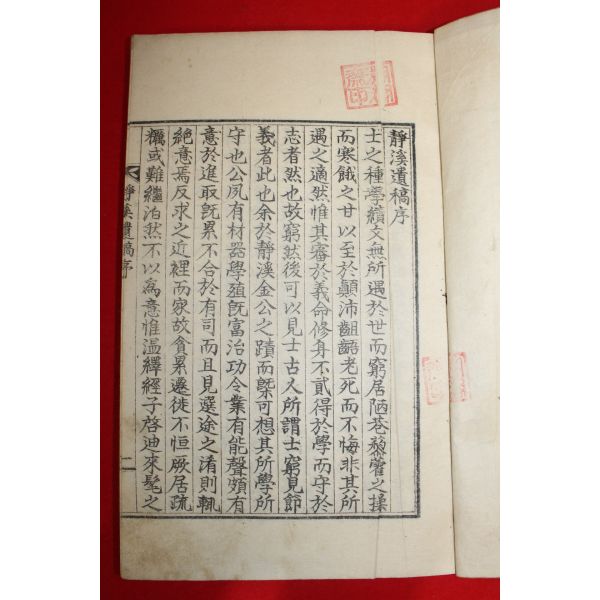 靜溪遺稿序
士之種學績文無所遇於世而窮居陋巷藜藿之糅
而寒餓之甘以至於顚沛齟齬老死而不悔非其所
遇之適然惟其審於義命修身不貳得於學而守於
志者然也故窮然後可以見士古人所謂士窮見節
義者此也余於靜溪金公之蹟而槩可想其所學所
守也公夙有材器學殖旣富治功令業有能聲頗有
意於進取旣累不合於有司而且見選途之淆則輒
絶意焉反求之近裡而家故貧累遷徙不恒厥居疏
糲或難繼泊然不以為意惟溫繹經子啓迪來髦之
靜溪遺稿序